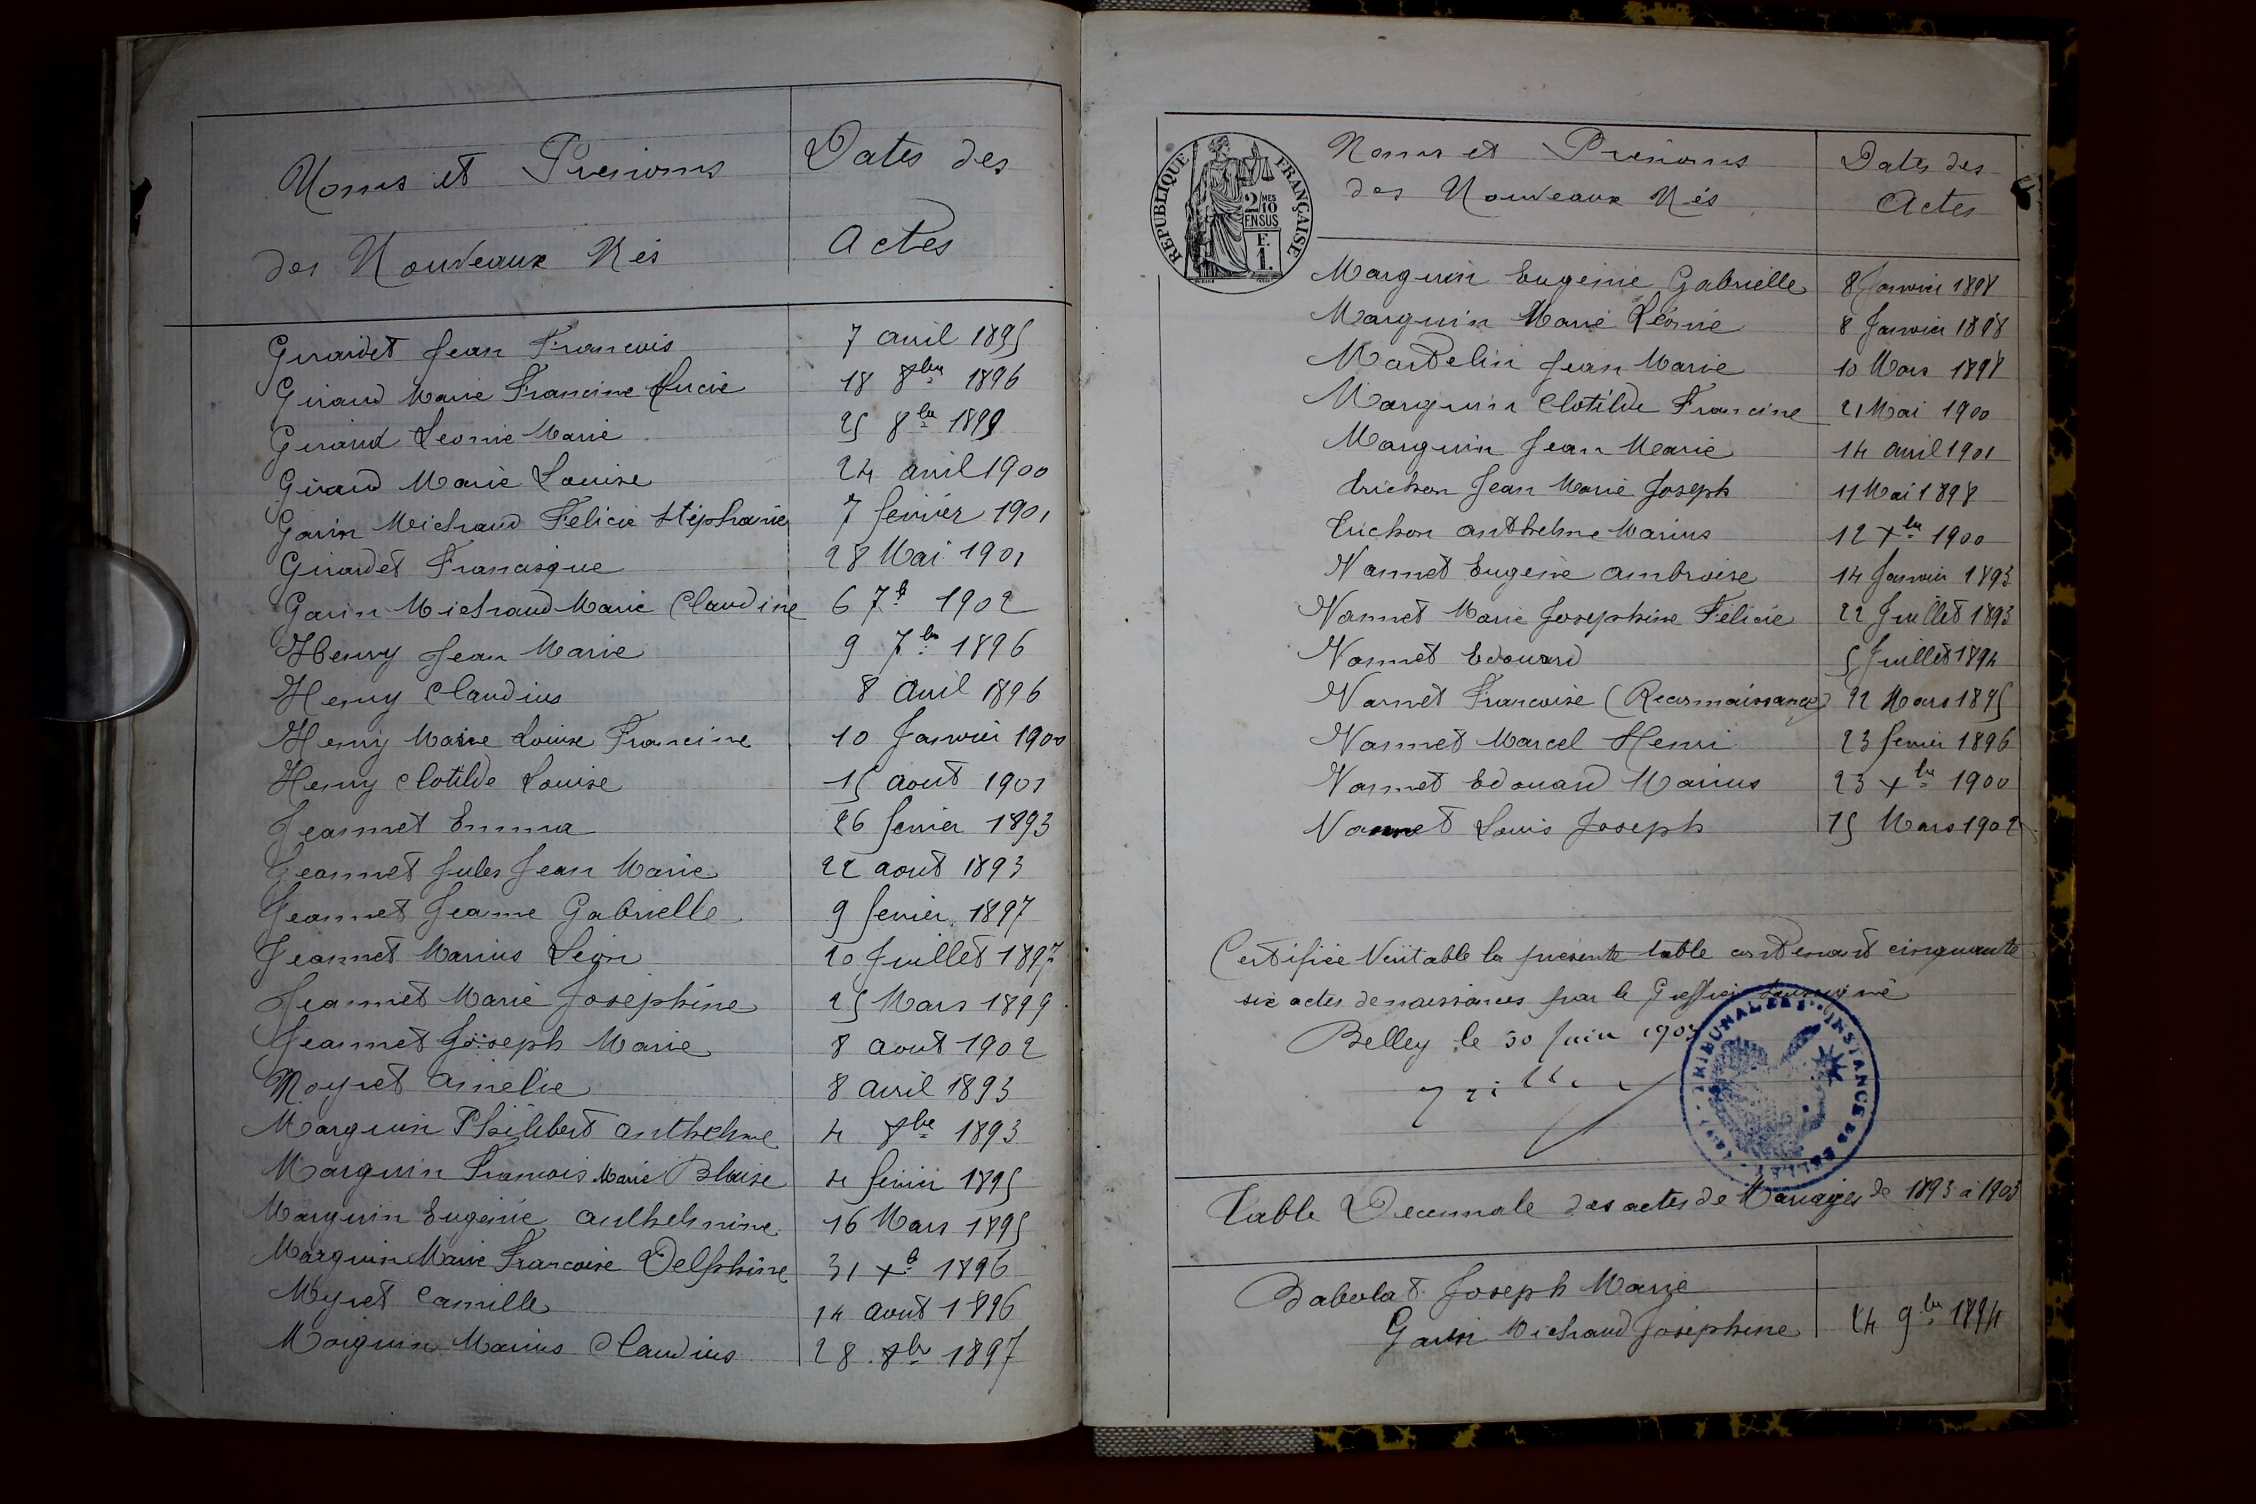 Noms et Prenoms
des Nouveaux Nés
Dates des
Actes
Girardet Jean Francois 7 avril 1895
Giraud Marie Francine Lucie 18 8bre 1896
Giraud Leonie Marie 25 8bre 1899
Giraud Marie Louise 24 avril 1900
Garin Michaud Felicie Stéphanie 7 fevrier 1901
Girardet Francisque 28 Mai 1901
Garin Michaud Marie Claudine 6 7b 1902
Henry Jean Marie 9 7bre 1896
Henry Claudius 8 Avril 1896
Henry Marie Louise Francine 10 Janvier 1900
Henry Clotilde Louise 15 aout 1901
Jeannet Emma 26 fevrier 1893
Jeannet Jules Jean Marie 22 aout 1893
Jeannet Jeanne Gabrielle 9 fevrier 1897
Jeannet Marius Léon 20 Juillet 1897
Jeannet Marie Josephine 25 Mars 1899
Jeannet Joseph Marie 8 aout 1902
Moyret Amelie 8 avril 1893
Marguin Philibert Anthelme 4 8bre 1893
Marguin Francois Marie Blaise 4 fevrier 1895
Marguin Eugenie Anthelmine 16 Mars 1895
Marguin Marie Francoise Delphine 31 Xb 1896
Myret Camille 14 aout 1896
Marguin Marius Claudius 28 8bre 1897
REPUBLIQUE FRANÇAISE
2/10 MES
EN SUS
F.
1.
Noms et Prenoms
des Nouveaux Nés
Dates des
Actes
Marguin Eugenie Gabrielle 8 Janvier 1898
Marguin Marie Léonie 8 Janvier 1898
Martelin Jean Marie 10 Mars 1898
Marguin Clotilde Francine 21 Mai 1900
Marguin Jean Marie 14 avril 1901
Trichon Jean Marie Joseph 11 Mai 1898
Trichon Anthelme Marius 12 Xbre 1900
Vannet Eugène Ambroise 14 Janvier 1893
Vannet Marie Josephine Félicie 22 Juillet 1893
Vannet Edouard 5 Juillet 1894
Vannet Francoise (Reconnaissance) 22 Mars 1895
Vannet Marcel Henri 23 fevrier 1896
Vannet Edouard Marius 23 Xbre 1900
Vannet Louis Joseph 15 Mars 1902
Certifiée Véritable la présente table contenant cinquante
six actes de naissances par le Greffier soussigné
Belley le 30 Juin 1903
TRIBUNAL INSTANCE DE BELLEY
Table Decennale des actes de Mariages de 1893 à 1903
Babolat Joseph Marie
Garin Michaud Josephine 24 9bre 1894